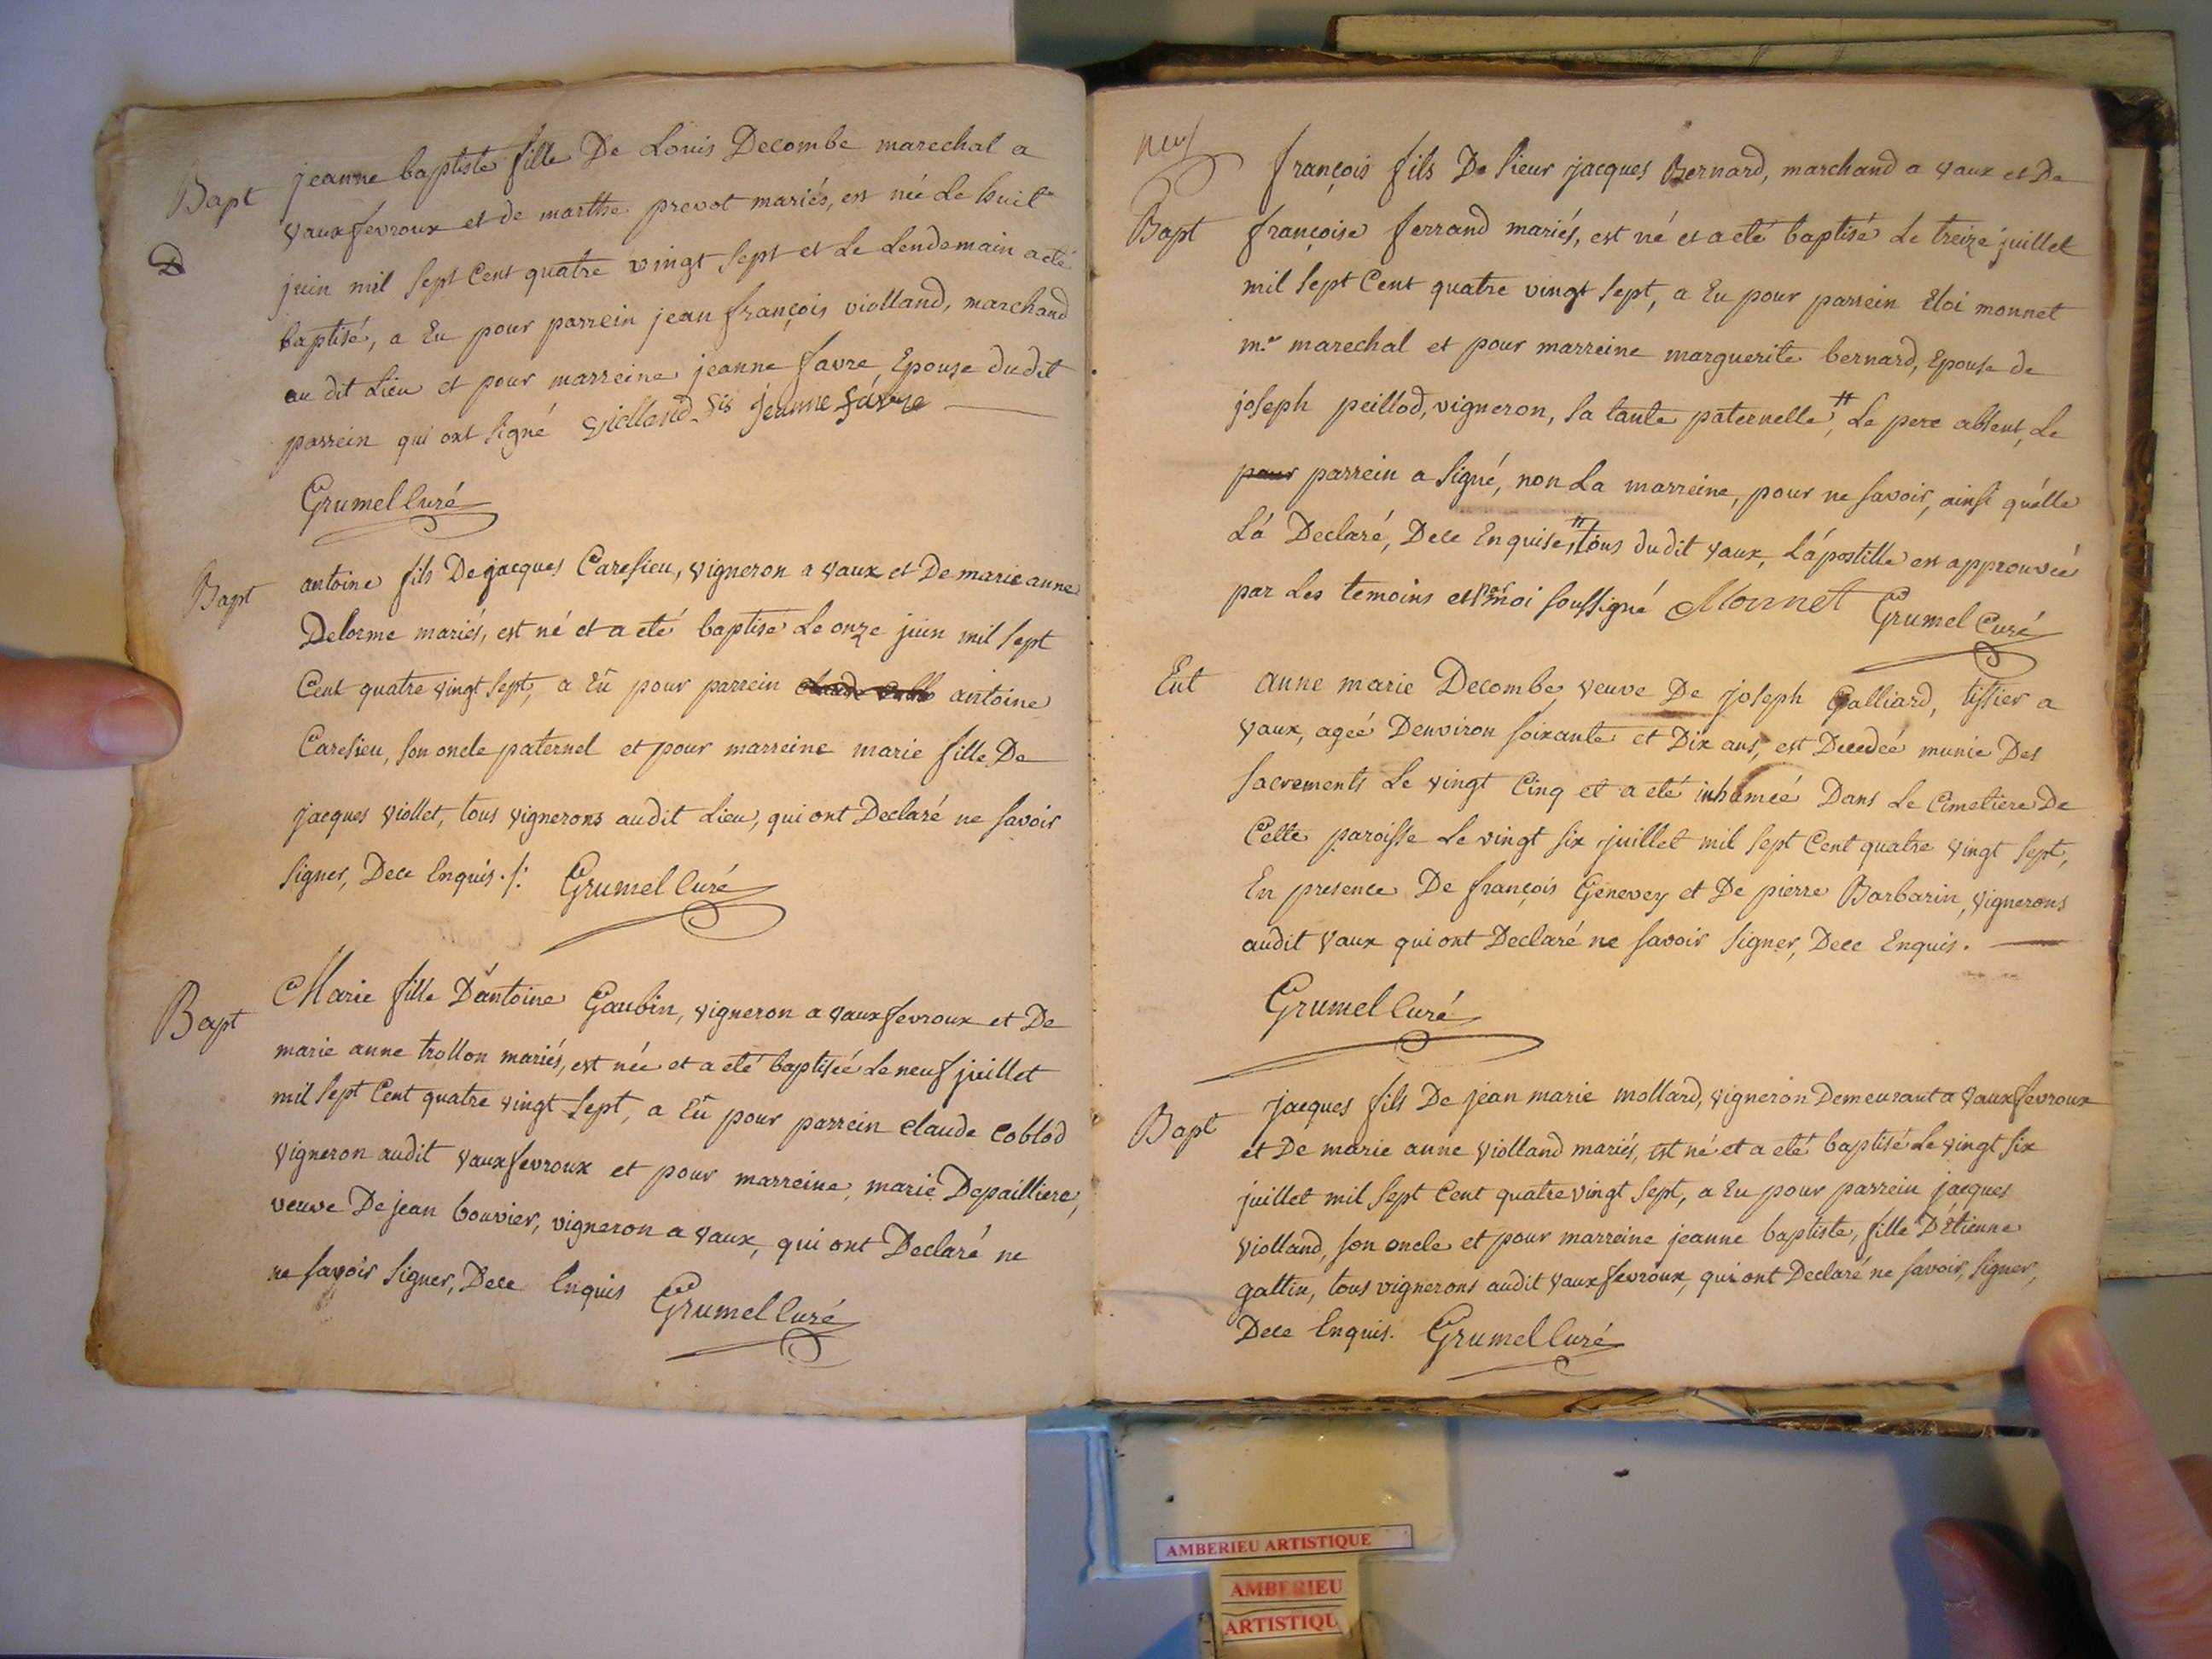 Bapt
D
jeanne baptiste fille De Louis Decombe marechal a
vauxfevroux et de marthe prevot mariés, est née Le huit
juin mil sept Cent quatre vingt sept et Le Lendemain a eté
baptisé, a Eu pour parrein jean françois violland, marchand
au dit Lieu et pour marreine jeanne favre, Epouse dudit
parrein qui ont signé violland fis jeanne favre
Grumel Curé
Bapt
antoine fils De jacques Caresieu, vigneron a vaux et De marie anne
Delorme mariés, est né et a eté baptise Le onze juin mil sept
Cent quatre vingt sept, a Eû pour parrein antoine
Caresieu, son oncle paternel et pour marreine marie fille De
jacques viollet, tous vignerons audit Lieu, qui ont Declaré ne savoir
signer, Dece Enquis ./. Grumel Curé
Bapt
Marie fille D'antoine Gaubin, vigneron a vauxfevroux et De
marie anne trollon mariés, est née et a eté baptisée Le neuf juillet
mil sept Cent quatre vingt sept, a Eû pour parrein claude coblod
vigneron audit vauxfevroux et pour marreine, marie Depailliere,
veuve De jean bouvier, vigneron a vaux, qui ont Declaré ne
ne savoir signer, Dece Enquis Grumel Curé
neuf
Bapt
françois fils De sieur jacques Bernard, marchand a vaux et De
françoise ferrand mariés, est né et a eté baptisé Le treize juillet
mil sept Cent quatre vingt sept, a Eu pour parrein Eloi monnet
m.e marechal et pour marreine marguerite bernard, Epouse de
joseph peillod, vigneron, sa tante paternelle, # Le pere absent, Le
pour parrein a signé, non La marreine, pour ne savoir, ainsi qu'elle
L'a Declaré, Dece Enquise, # tous dudit vaux, L'apostille est approuvée
par Les temoins et par moi soussigné Monnet Grumel Curé
Ent
anne marie Decombe, veuve De joseph Galliard, tissier a
vaux, ageé Denviron soixante et Dix ans, est Decedeé munie Des
sacrements Le vingt Cinq et a eté inhumeé Dans Le Cimetiere De
Cette paroisse Le vingt six juillet mil sept Cent quatre vingt sept,
En presence De françois Genevey et De pierre Barbarin, vignerons
audit vaux qui ont Declaré ne savoir signer, Dece Enquis.
Grumel Curé
Bapt
jacques fils De jean marie mollard, vigneron Demeurant a vauxfevroux
et De marie anne violland mariés, est né et a eté baptisé Le vingt six
juillet mil sept Cent quatre vingt sept, a Eu pour parrein jacques
violland, son oncle et pour marreine jeanne baptiste, fille D'etienne
gattin, tous vignerons audit vauxfevroux, qui ont Declaré ne savoir signer,
Dece Enquis. Grumel Curé
AMBERIEU ARTISTIQUE
AMBERIEU
ARTISTIQU